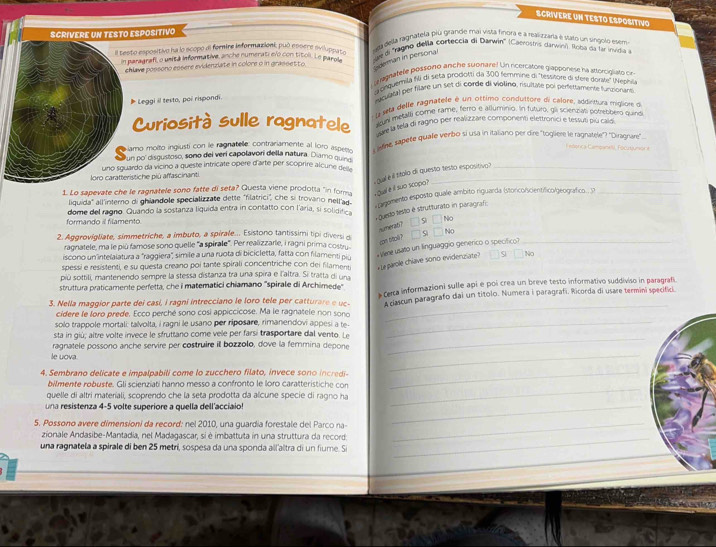 SCRIVERE UN TESTO ESPOSITIVO
Il testo espositivo ha lo scopo di fornire informazioni; può essere sviluppato
in paragrafi, o unità informative, anche numerati e/o con titoli. Le parole
chiave possono essere evidenziate in colore o in grassetto.
Leggi il testo, poi rispondi.
Curiosità sulle ragnatele
Siamo molto ingiusti con le ragnatele: contrariamente al loro aspetto
un po' disgustoso, sono dei veri capolavori della natura. Diamo quindi
uno sguardo da vicino a queste intricate opere d'arte per scoprire alcune delle
loro caratteristiche più affascinanti.
1. Lo sapevate che le ragnatele sono fatte di seta? Questa viene prodotta "in forma
liquida" all'interno di ghiandole specializzate dette "filatrici", che si trovano nell'ad-
dome del ragno. Quando la sostanza liquida entra in contatto con l'aria, si solidifica
formando il filamento.
2. Aggrovigliate, simmetriche, a imbuto, a spirale... Esistono tantissimi tipi diversi di
ragnatele, ma le più famose sono quelle "a spirale". Per realizzarle, i ragni prima costru-
iscono un'intelaiatura a "raggiera", simile a una ruota di bicicletta, fatta con filamenti più
spessi e resistenti, e su questa creano poi tante spirali concentriche con dei filamenti
più sottili, mantenendo sempre la stessa distanza tra una spira e l'altra. Si tratta di una
struttura praticamente perfetta, che i matematici chiamano "spirale di Archimede".
3. Nella maggior parte dei casi, i ragni intrecciano le loro tele per catturare e uc-
cidere le loro prede. Ecco perché sono così appiccicose. Ma le ragnatele non sono
solo trappole mortali: talvolta, i ragni le usano per riposare, rimanendovi appesi a te-
sta in giù; altre volte invece le sfruttano come vele per farsi trasportare dal vento. Le
ragnatele possono anche servire per costruire il bozzolo, dove la femmina depone
le uova.
4. Sembrano delicate e impalpabili come lo zucchero filato, invece sono incredi-
bilmente robuste. Gli scienziati hanno messo a confronto le loro caratteristiche con
quelle di altri materiali, scoprendo che la seta prodotta da alcune specie di ragno ha
una resistenza 4-5 volte superiore a quella dell'acciaio!
5. Possono avere dimensioni da record: nel 2010, una guardia forestale del Parco na-
zionale Andasibe-Mantadia, nel Madagascar, si è imbattuta in una struttura da record:
una ragnatela a spirale di ben 25 metri, sospesa da una sponda all'altra di un fiume. Si
SCRIVERE UN TESTO ESPOSITIVO
della ragnatela più grande mai vista finora e a realizzarla è stato un singolo esem-
di "ragno della corteccia di Darwin" (Caerostris darwini). Roba da far invidia a
in persona!
ragnatele possono anche suonare! Un ricercatore giapponese ha attorcigliato cir-
cinquemila fili di seta prodotti da 300 femmine di "tessitore di sfere dorate" (Nephila
per filare un set di corde di violino, risultate poi perfettamente funzionanti.
seta delle ragnatele è un ottimo conduttore di calore, addirittura migliore di
metalli come rame, ferro e alluminio. In futuro, gli scienziati potrebbero quindi
la tela di ragno per realizzare componenti elettronici e tessuti più caldi.
Infine, sapete quale verbo si usa in italiano per dire "togliere le ragnatele"? "Diragnare"...
Qual è il titolo di questo testo espositivo?
Qual è il suo scopo?
L'argomento esposto quale ambito riguarda (storico/scientifico/geografico...)?
Questo testo è strutturato in paragrafi:
numerati? Sì No
con titoli? Sì No
Viene usato un linguaggio generico o specifico?
Le parole chiave sono evidenziate? Sì No
Cerca informazioni sulle api e poi crea un breve testo informativo suddiviso in paragrafi.
A ciascun paragrafo dai un titolo. Numera i paragrafi. Ricorda di usare termini specifici.